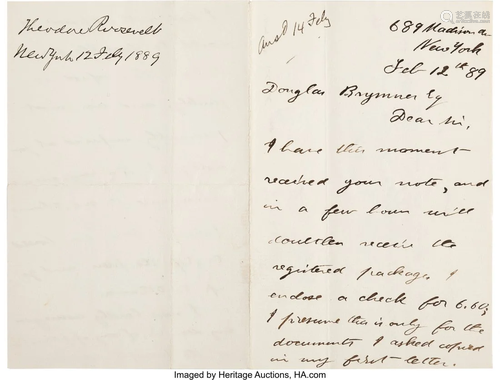 Theodore Roosevelt
New York 12 Feby 1889
ansd 14 Feby
689 Madison Av
New York
Feb 12th 89
Douglas Brymner Esq
Dear Sir,
I have this moment
received your note, and
in a few hours will
doubtless receive the
registered package. I
enclose a check for 6.60;
I presume this is only for the
documents I asked copied
in my first letter.
Imaged by Heritage Auctions, HA.com